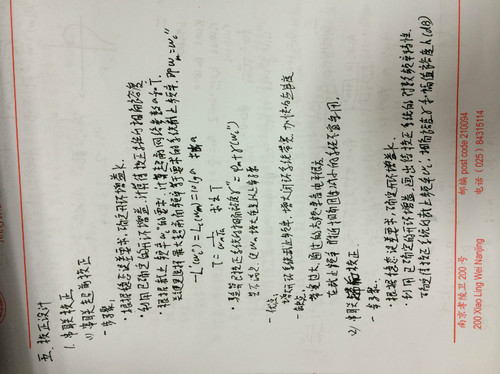 五、校正设计
1. 串联校正
1) 串联超前校正
一 步骤:
· 根据稳态误差要求,确定开环增益k.
· 利用已确定的开环增益,计算待校正系统的相角裕度
· 根据截止频率ωc″的要求,计算超前网络参数a和T.
关键是选择最大超前角频率等于要求的系统截止频率,即ωm=ωc″
-L'(ωc″) = Lc(ωm) = 10lg a 求a
T = 1/(ωm√a) 求T
· 验算已校正系统的相角裕度γ″ = φm+γ(ωc″)
若不满足,使ωm增大重复以上步骤
- 优点:
增大开环系统截止频率,增大闭环系统带宽,加快响应速度
- 缺点:
带宽过大,通过的高频噪声电平很高
在截止频率附近相角迅速减小的系统不宜采用.
2) 串联滞后校正.
一 步骤:
· 根据稳态误差要求,确定开环增益k.
· 利用已确定的开环增益,画出待校正系统的对数频率特性,
确定待校正系统的截止频率ωc′,相角裕度γ和幅值裕度h(dB)
南京孝陵卫 200 号 邮编 post code 210094
200 Xiao Ling Wei Nanjing 电话(025)84315114